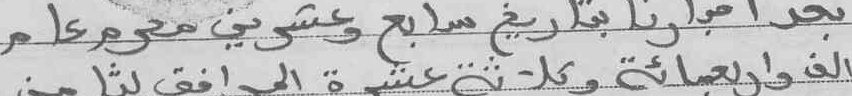 بعد اخبارنا بتاريخ سابع وعشرين محرم عام
الف واربعمائة وثلاثة عشرة الموافق لثامن